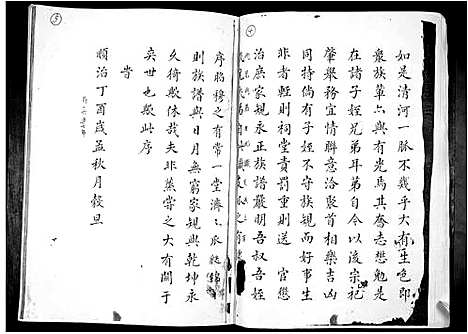 十
如是清河一脉不幾乎大有生色即
衆族葷六與有光焉其奮志懋勉是
在諸子姪兄弟年弟自今以後宗祀
肇舉務宜情聯意洽聚首相樂吉凶
同特倘有子姪不守族規而好事生
非者輕則祠堂責罰重則送 官懲
治庶家規永正族譜嚴明吾叔吾姪
五
序昭穆之有常一堂濟濟瓜瓞
則族譜與日月無窮家規與乾坤
久倚歟休哉夫非蒸嘗之大有關于
奕世也歟此序
旹
順治丁酉歲孟秋月穀旦